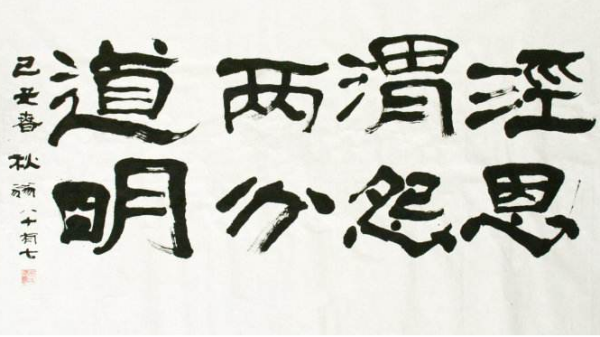 涇渭两道
恩怨分明
己丑春 秋 八十有七